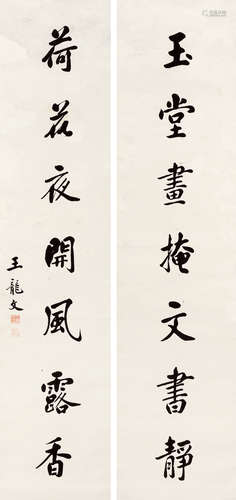 玉堂畫掩文書靜
荷花夜開風露香
王龍文